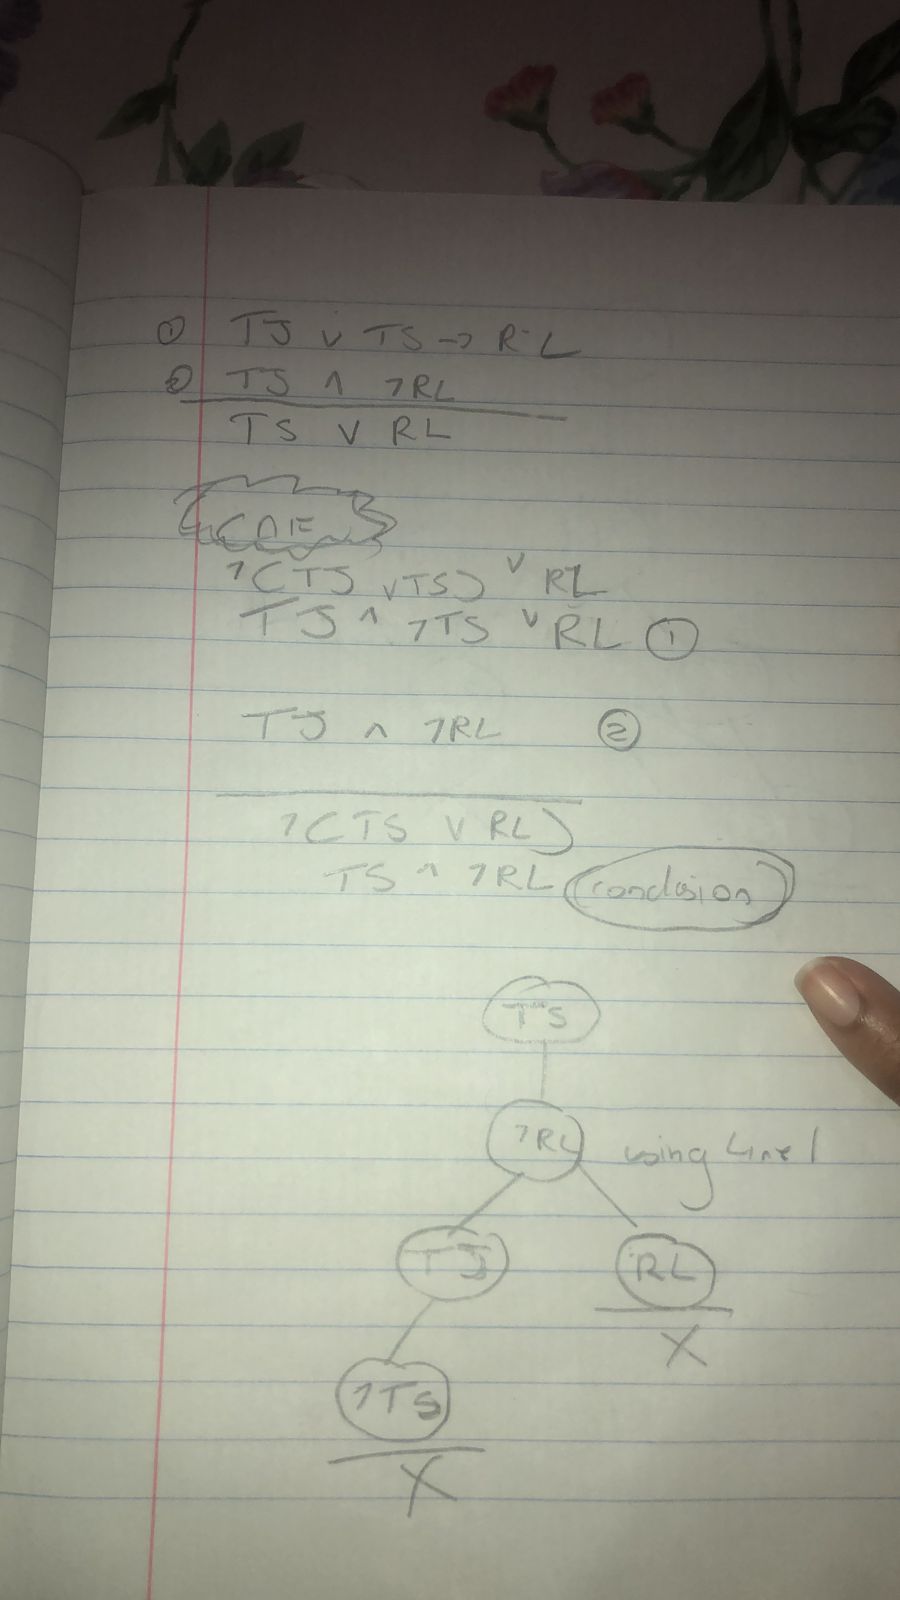 ① TJ ∨ TS → RL
② TJ ∧ ¬RL
TS ∨ RL
¬(TJ ∨ TS) ∨ RL
TJ ∧ ¬TS ∨ RL ①
TJ ∧ ¬RL ②
¬(TS ∨ RL)
TS ∧ ¬RL conclusion
TS
¬RL using Line 1
TJ RL
X
¬TS
X